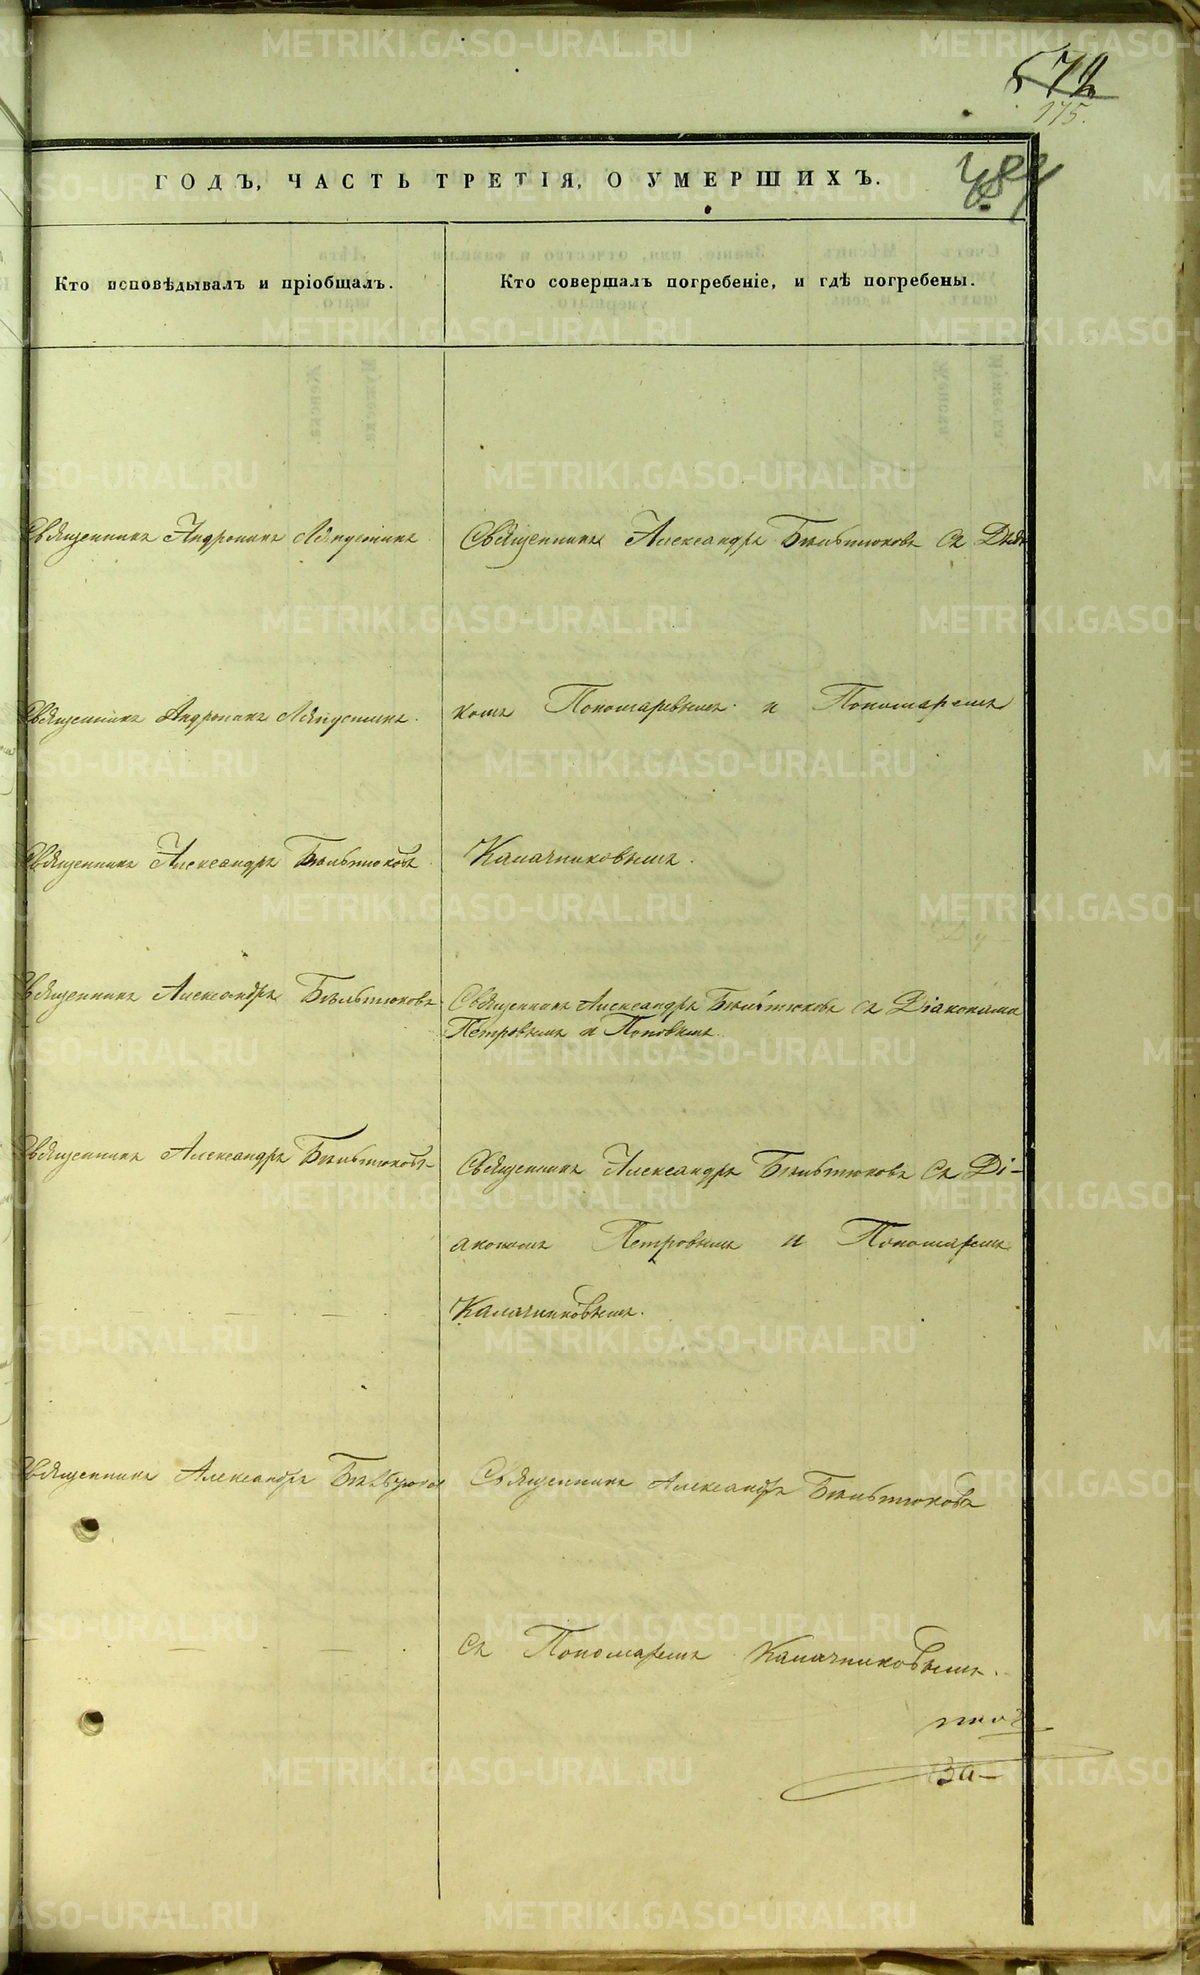 572
175.
ГОДЪ, ЧАСТЬ ТРЕТІЯ, О УМЕРШИХЪ.
Кто исповѣдывалъ и пріобщалъ.
Кто совершалъ погребеніе, и гдѣ погребены.
Священникъ Андроникъ Ляпустинъ
Священникъ Александръ Бѣльтюковъ съ Діа
Священникъ Андроникъ Ляпустинъ.
кономъ Пономаревымъ и Пономаремъ
Священникъ Александръ Бѣльтюковъ
Калачниковымъ.
Священникъ Александръ Бѣльтюковъ
Священникъ Александръ Бѣльтюковъ съ Діаконами
Петровымъ и Поповымъ.
Священникъ Александръ Бѣльтюковъ
Священникъ Александръ Бѣльтюковъ съ Ді-
акономъ Петровымъ и Пономаремъ
Калачниковымъ.
Священникъ Александръ Бѣльтюковъ
Священникъ Александръ Бѣльтюковъ
съ Пономаремъ Калачниковымъ.
За-
METRIKI.GASO-URAL.RU